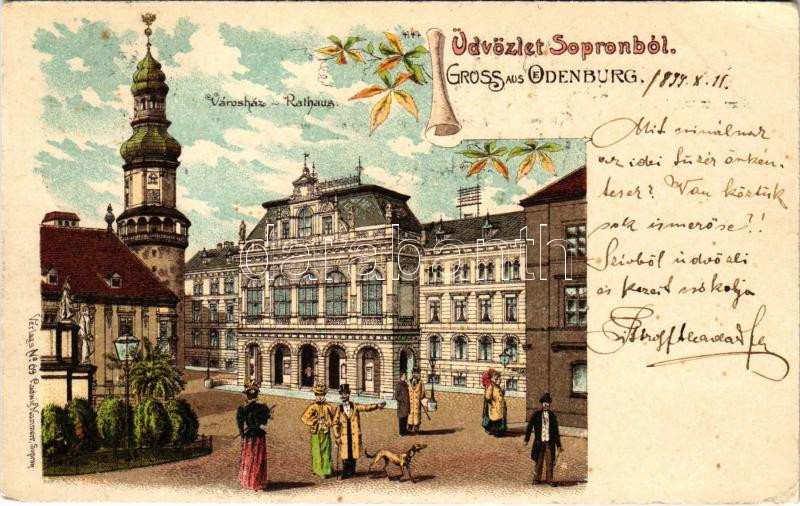 Üdvözlet Sopronból.
GRUSS AUS OEDENBURG.
Városház – Rathaus.
Mit csinálnak
az idei tüzér önkén-
tesek? Van köztük
sok ismerőse?!
Szivből üdvözli
és kezeit csókolja
Verlags No. 69
darabanth